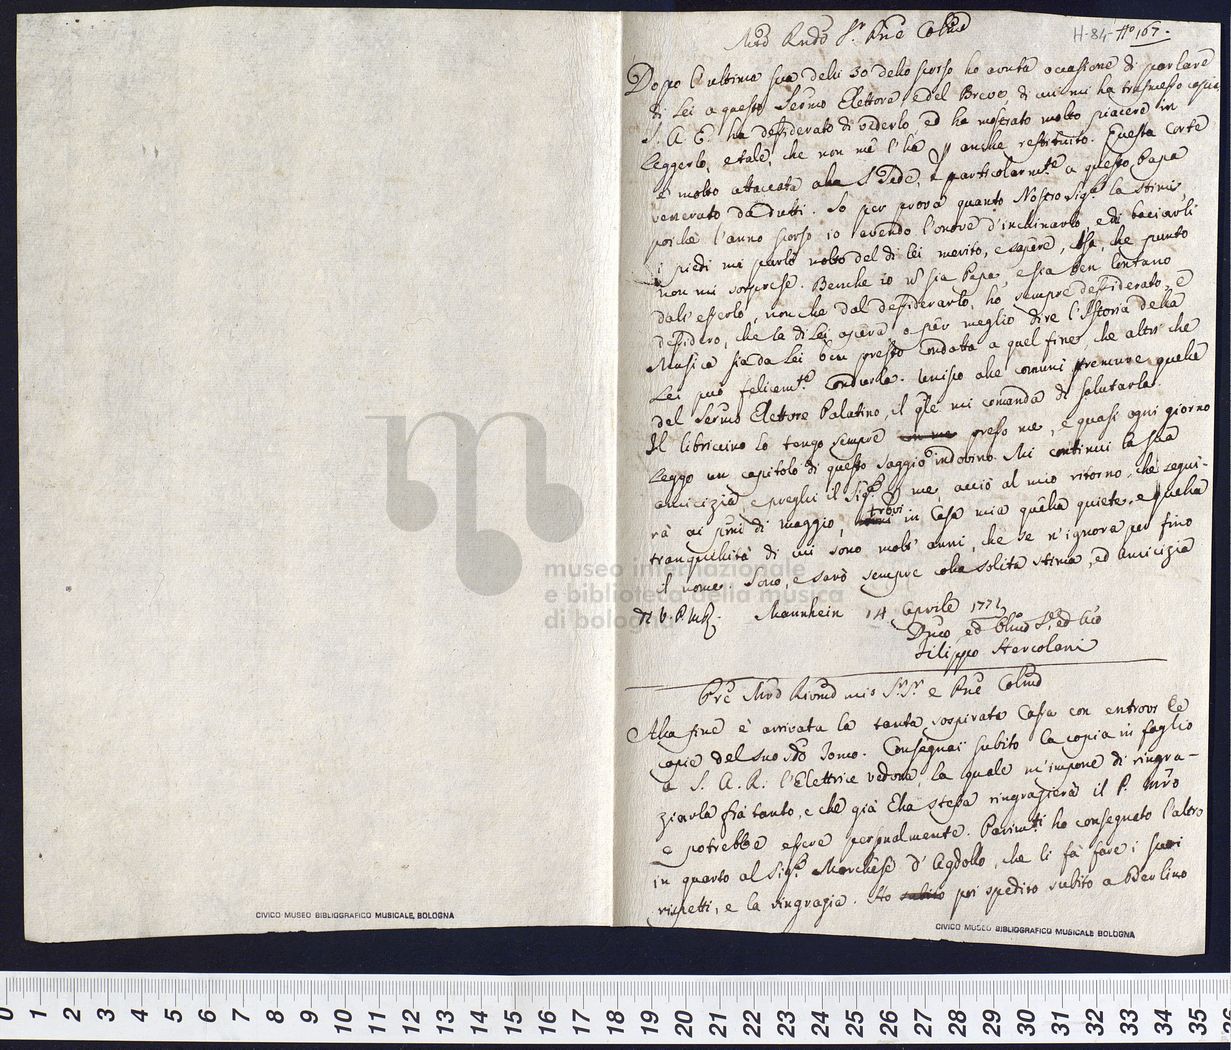 H-84 No 167.
Mto Rndo Sr. Pne Colmo
Dopo l'ultima sua delli 30 dello scorso ho avuta occasione di parlare
di Lei a questo Sermo Elettore, e del Breve di cui mi ha trasmesso copia
S. A. E. ha desiderato di vederlo, ed ha mostrato molto piacere in
leggerlo, e tale, che non me l'ha p anche restituito. Questa Corte
è molto attaccata alla S. Sede, e particolarmte a questo Papa
venerato da tutti. Io per prova quanto Nostro Sigre la stimi,
poichè l'anno scorso io avendo l'onore d'inchinarlo, e di baciarli
i piedi mi parlò molto del di lei merito, e sapere, che punto
non mi sorprese. Benche io nō sia Papa, e sia ben lontano
dall'esserlo, non che dal desiderarlo, ho sempre desiderato, e
desidero, che la di Lei opera, o per meglio dire l'Istoria della
Musica sia da Lei ben presto condotta a quel fine, che altri che
Lei può felicemte condurla. Unisco alle comuni premure quelle
del Sermo Elettore Palatino, il qle mi comanda di salutarla.
Il libriccino lo tengo sempre presso me, e quasi ogni giorno
leggo un capitolo di questo saggio indovino. Mi continui la sua
amicizia, e preghi il Sigre p me, acciò al mio ritorno, che segui-
rà ai pmi di maggio, trovi in Casa mia quella quiete, e quella
tranquillità di cui sono molt'anni, che se n'ignora per fino
il nome. Sono, e sarò sempre colla solita stima, ed amicizia
Di V. P. M. R. Mannhein 14 Aprile 1772
Dmo ed Obbmo Sre, ed Aico
Filippo Hercolani
Pre Mto Rivmo mio Sr. Sr. e Pne Colmo
Alla fine è arrivata la tanta sospirata Cassa con entrovi le
copie del suo 2do Tomo. Consegnai subito la copia in foglio
a S. A. R. l'Elettrice vedova, la quale m'impone di ringra-
ziarla frà tanto, e che già Ella stessa ringrazierà il P. Mro
e potrebbe essere personalmente. Parimti ho consegnato l'altro
in quarto al Sigre Marchese d'Agdollo, che li fà fare i suoi
rispetti, e la ringrazia. Ho subito poi spedito subito a Berlino
CIVICO MUSEO BIBLIOGRAFICO MUSICALE, BOLOGNA
CIVICO MUSEO BIBLIOGRAFICO MUSICALE BOLOGNA
museo internazionale
e biblioteca della musica
di bologna
0 1 2 3 4 5 6 7 8 9 10 11 12 13 14 15 16 17 18 19 20 21 22 23 24 25 26 27 28 29 30 31 32 33 34 35 36